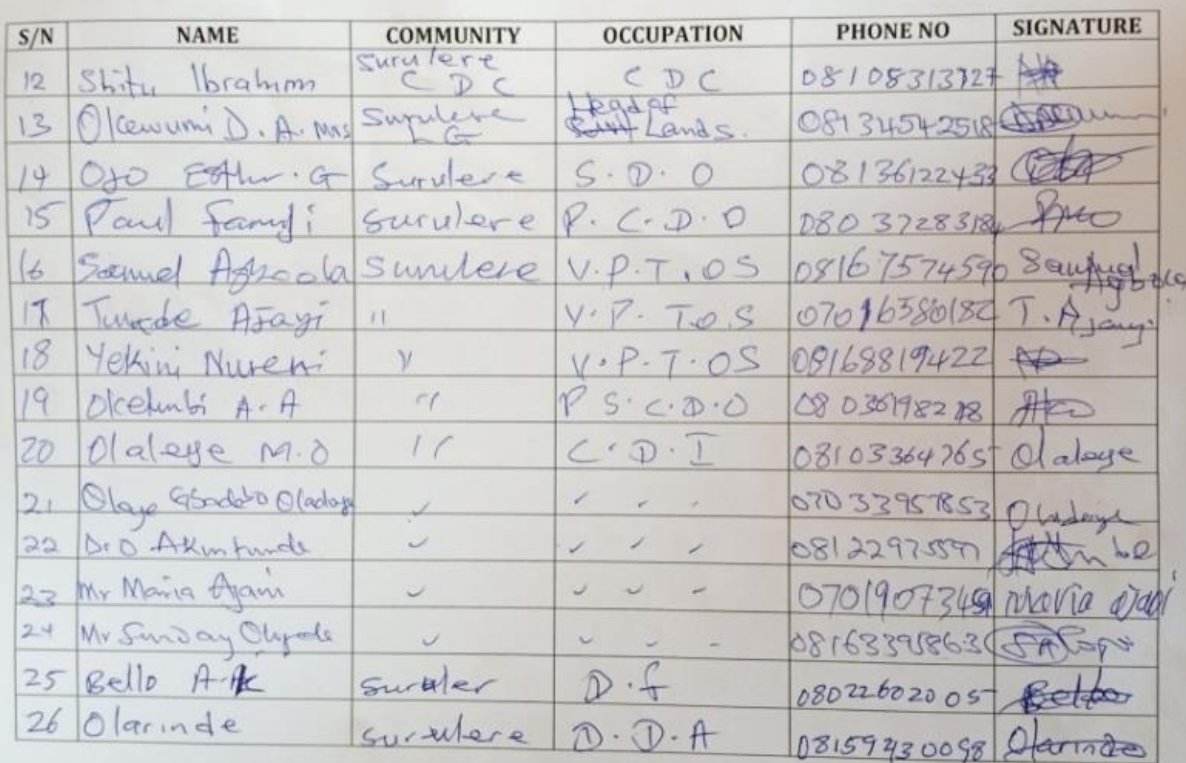 S/N NAME COMMUNITY OCCUPATION PHONE NO SIGNATURE
12 Shitu Ibrahim Surulere CDC CDC 08108313727
13 Okewumi D.A. Mrs Surulere LG Head of Lands. 08134542518
14 Ojo Esther. G Surulere S.D.O 08136122433
15 Paul Surulere P.C.D.O 08037283184
16 Samuel Agboola Surulere V.P.T.OS 08167574590 Samuel Agboola
17 Tunde Ajayi " V.P.T.O.S 07016580182 T. Ajayi
18 Yekini Nureni " V.P.T.OS 08168819422
19 Okelunbi A.A " P S.C.D.O
20 Olaleye M.O " C.D.I 08103364765 Olaleye
21 Oladayo 07033957853
22 D.O Akintunde
23 Mr Maria Ajani Maria
24 Mr Sunday
25 Bello A.K Suruler D.f 08022602005 Bello
26 Olarinde Surulere D.D.A 08159430098 Olarinde